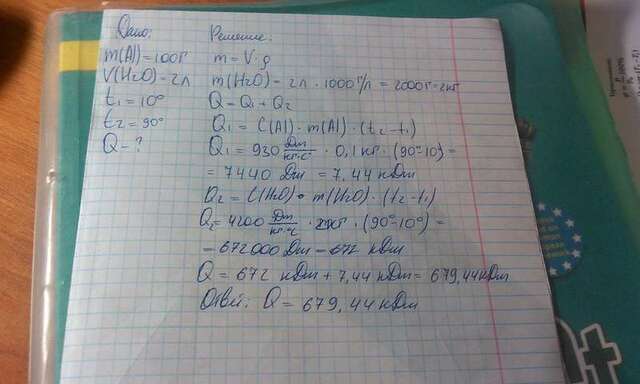 Дано:
m(Al)=100г
V(H2O)-2л
t1=10°
t2=90°
Q-?
Решение:
m=V·ρ
m(H2O)-2л·1000г/л=2000г-2кг
Q-Q1+Q2
Q1=C(Al)·m(Al)·(t2-t1)
Q1=930 Дж/кг·с·0,1кг·(90°-10)=
=7440 Дж=7,44 кДж
Q2=C(H2O)·m(H2O)·(t2-t1)
Q2=4200 Дж/кг·с·2кг·(90°-10°)=
-672000 Дж-672 кДж
Q=672 кДж+7,44кДж=679,44кДж
Ответ: Q=679,44 кДж